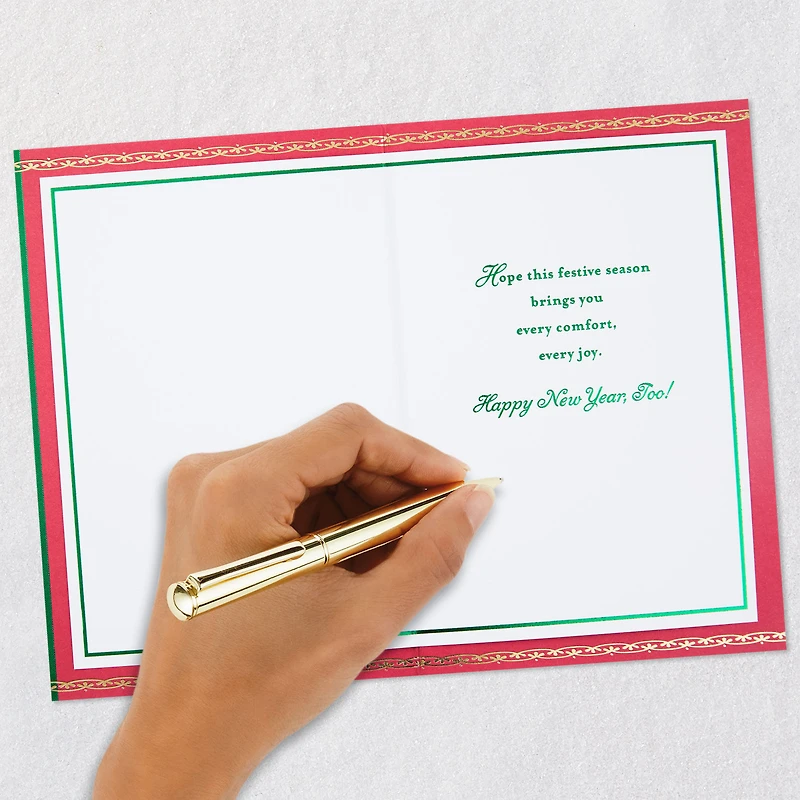 Hope this festive season
brings you
every comfort,
every joy.
Happy New Year, Too!